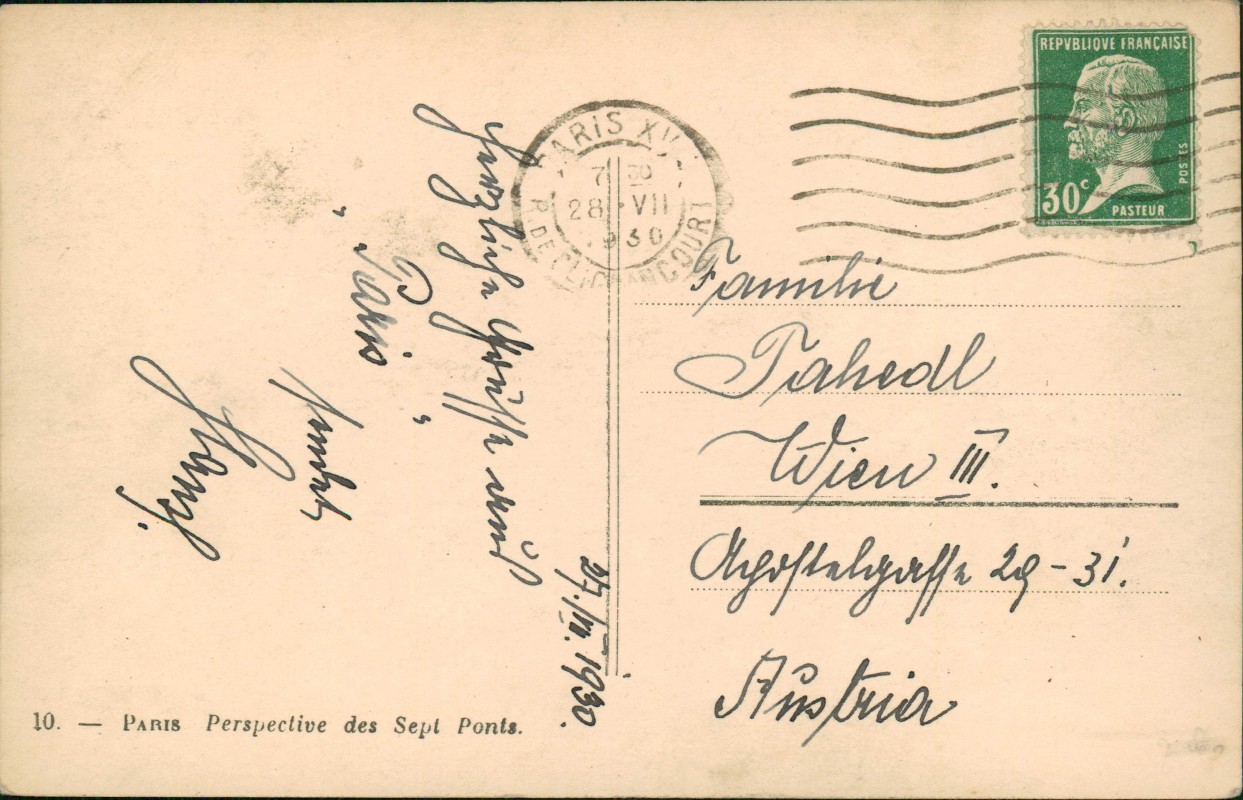 REPVBLIQVE FRANÇAISE
POSTES
30c
PASTEUR
PARIS XV
7
28 · VII
1930
R. DE CLIGNANCOURT
Familie
Tahedl
Wien III.
Apostelgasse 29-31.
Austria
27./VII. 1930.
Herzliche Grüsse aus
" Paris "
sendet
10. — PARIS Perspective des Sept Ponts.